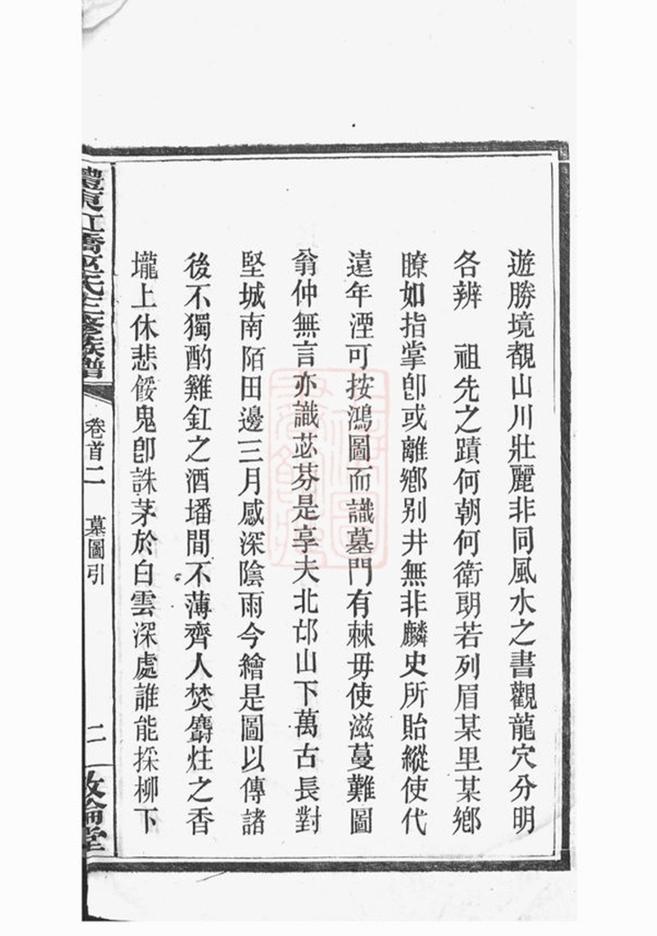 遊勝境覩山川壯麗非同風水之書觀龍穴分明
各辨　祖先之蹟何朝何衛朗若列眉某里某鄉
瞭如指掌卽或離鄉别井無非麟史所貽縱使代
遠年湮可按鴻圖而識墓門有棘毋使滋蔓難圖
翁仲無言亦識苾芬是享夫北邙山下萬古長對
堅城南陌田邊三月感深陰雨今繪是圖以傳諸
後不獨酌雞缸之酒墦間不薄齊人焚麝炷之香
壠上休悲餒鬼卽誅茅於白雲深處誰能採柳下
氏三修族譜
卷首二
墓圖引
二
敦倫堂